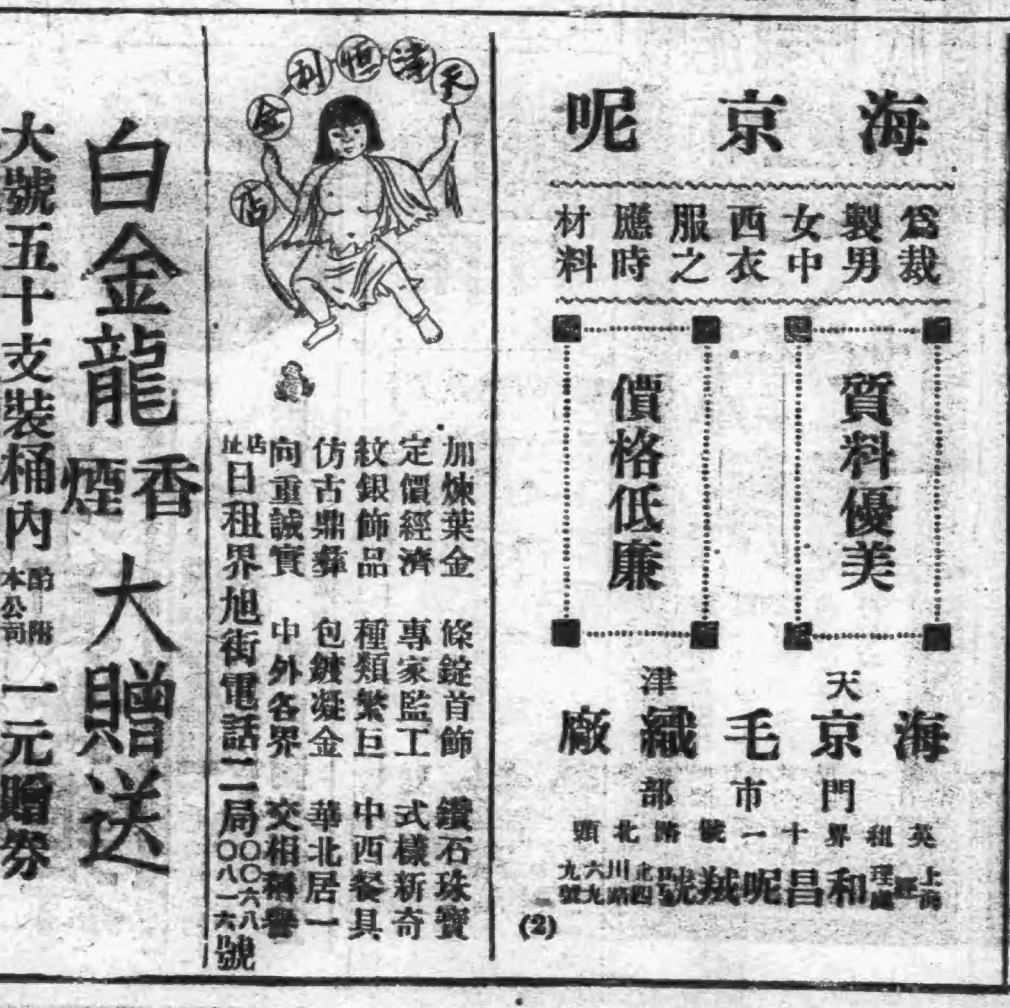 海京呢
為裁製男女中西衣服之應時材料
質料優美
價格低廉
天津
海京毛織廠
門市部
英租界十一號路北頭
上海經理處和昌呢絨號
四川路六九九號
(2)
天津恒利金店
加煉葉金 條錠首飾 鑽石珠寶
定價經濟 專家監工 式樣新奇
紋銀飾品 種類繁巨 中西餐具
仿古鼎彝 包鍍凝金 華北居一
向重誠實 中外各界 交相稱譽
店址日租界旭街電話二局〇〇六八 〇八一六號
白金龍香煙 大贈送
大號五十支裝桶內酌附本公司一元贈券